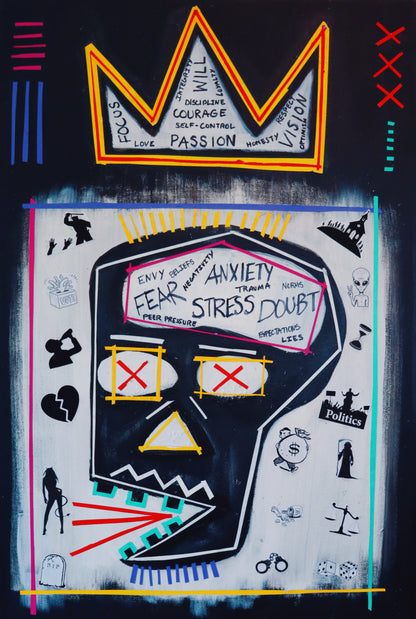 INTEGRITY
WILL
LOYALTY
DISCIPLINE
COURAGE
SELF-CONTROL
FOCUS
LOVE
PASSION
HONESTY
RESPECT
VISION
OPTIMISM
ENVY
BELIEFS
NEGATIVITY
ANXIETY
TRAUMA
NORMS
FEAR
STRESS
DOUBT
PEER PRESSURE
EXPECTATIONS
LIES
Politics
$
R.I.P